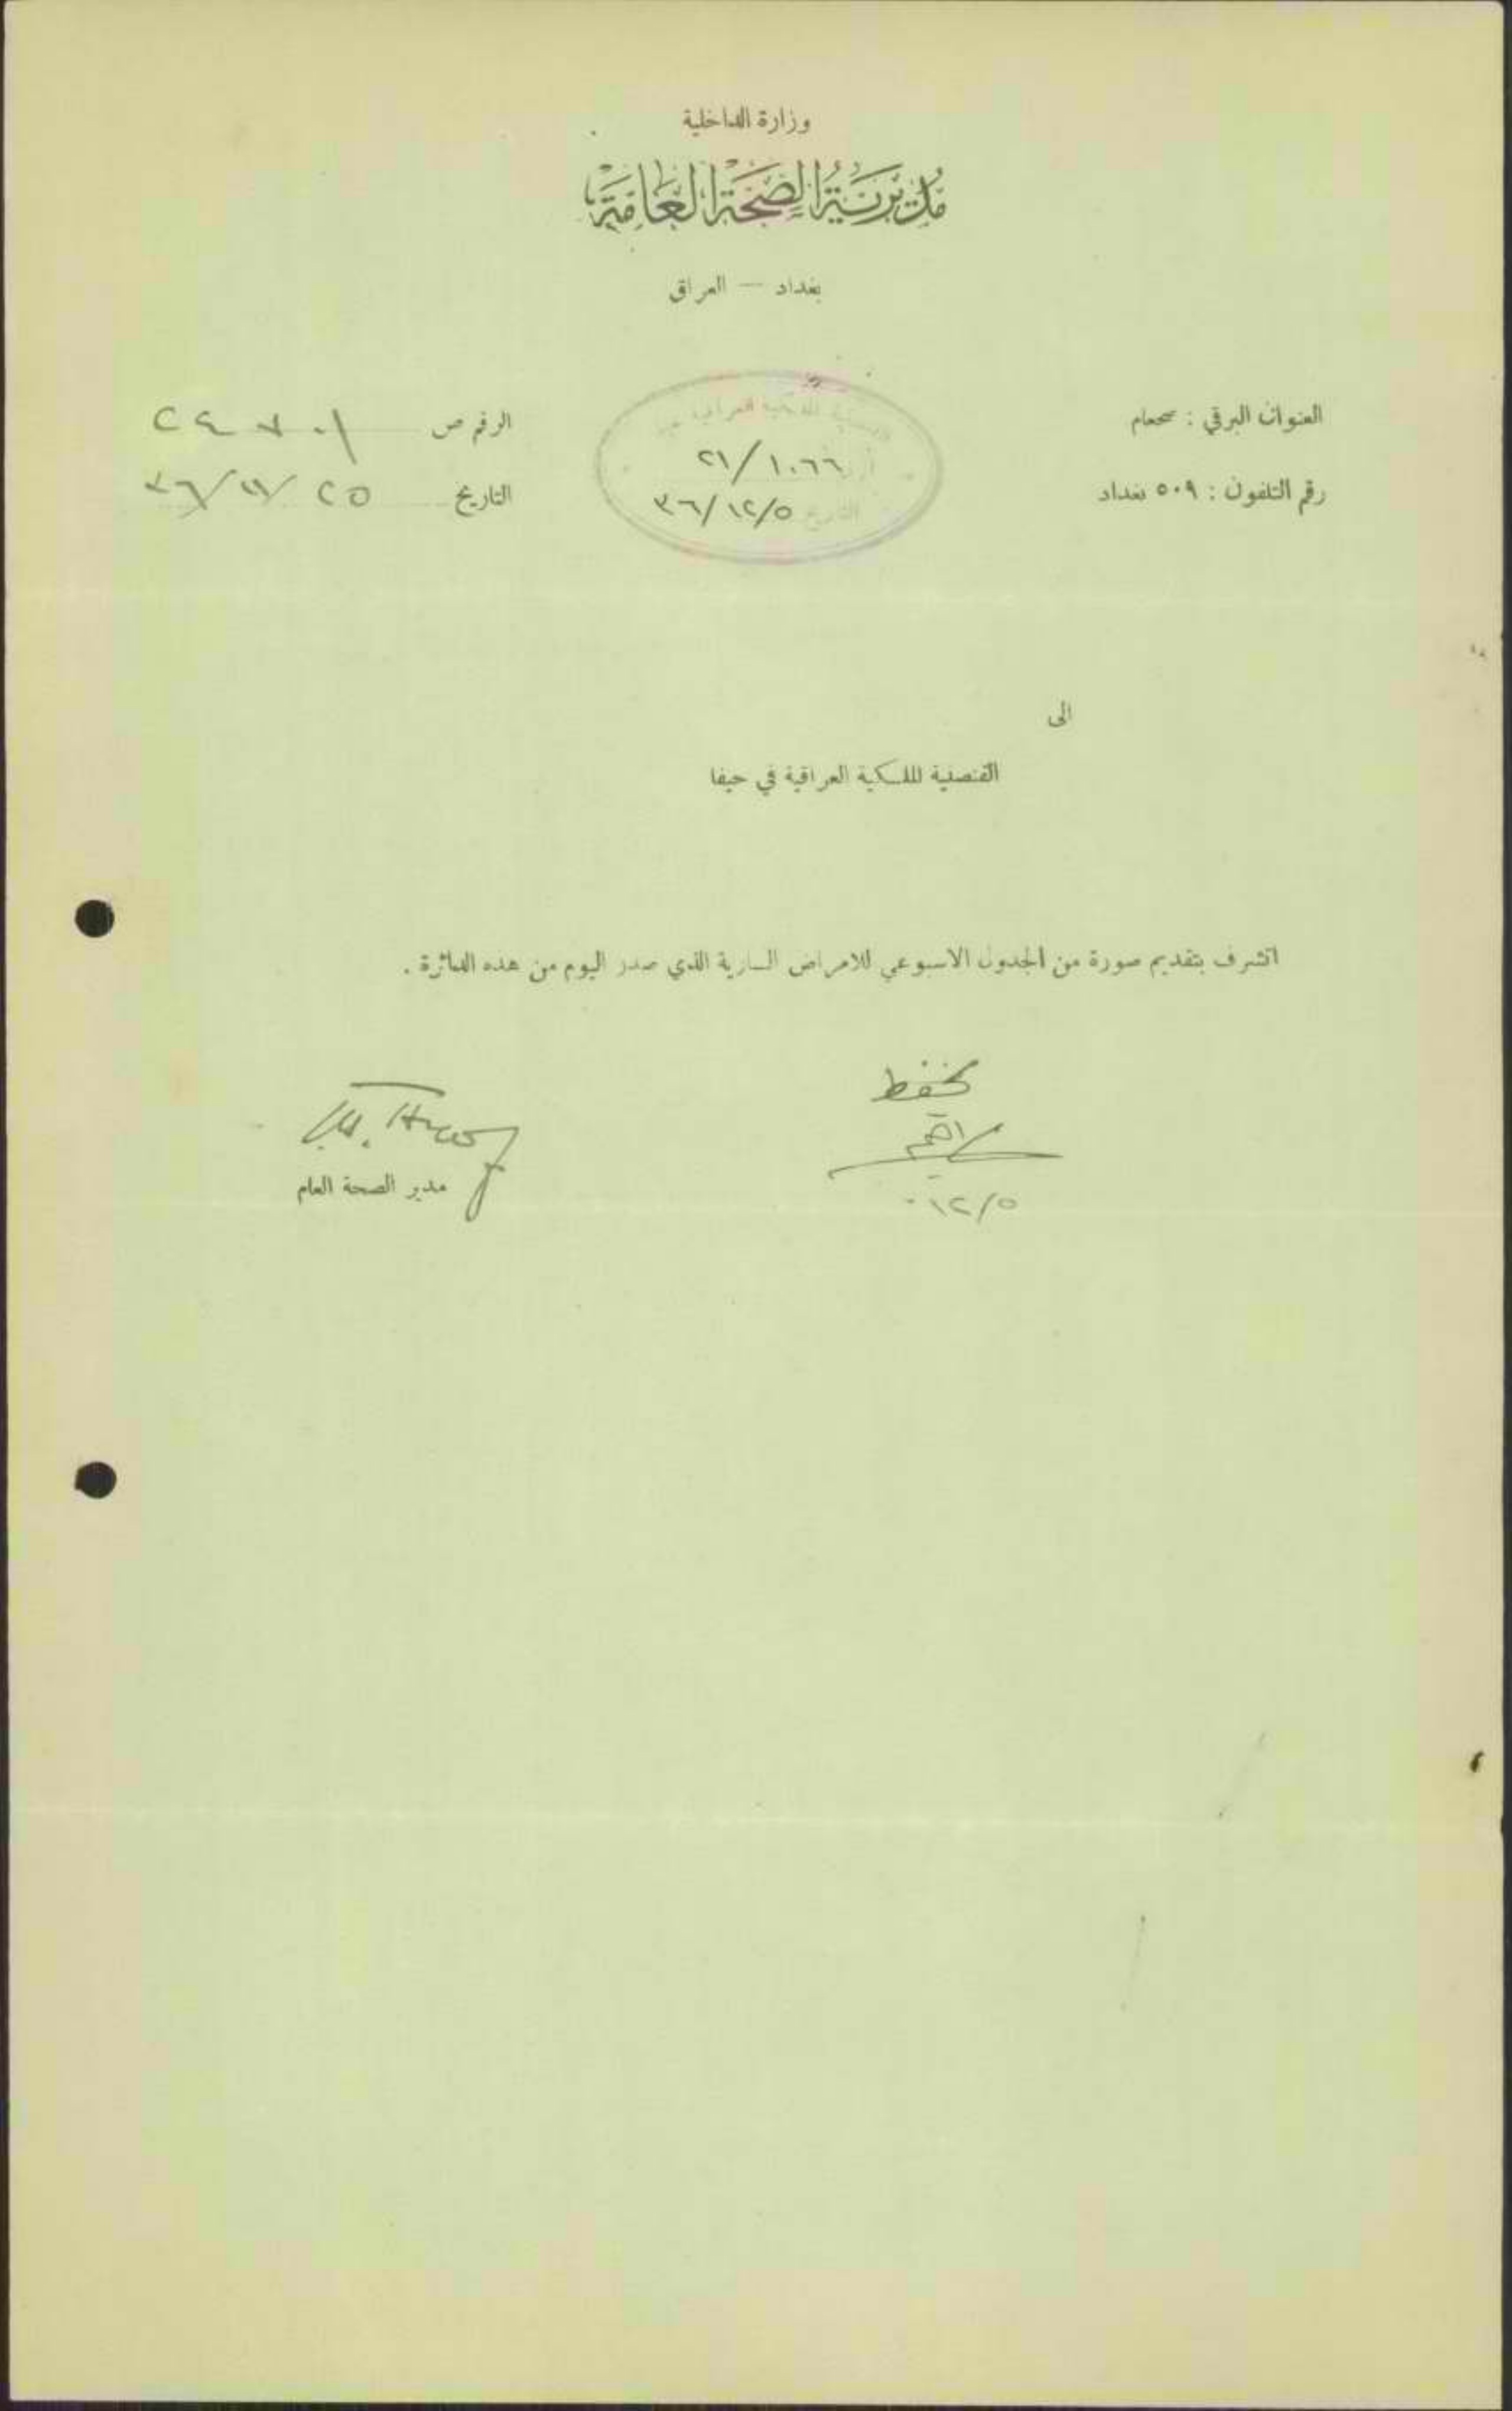 وزارة الداخلية
مديرية الصحة العامة
بغداد — العراق
العنوان البرقي : صحعام
رقم التلفون : ٥٠٩ بغداد
الرقم ص ٢٤٧٠١
التاريخ ٢٥/١١/٣٦
القنصلية الملكية العراقية
٢١/١٠٦٦
التاريخ ٣٦/١٢/٥
الى
القنصلية الملكية العراقية في حيفا
اتشرف بتقديم صورة من الجدول الاسبوعي للامراض السارية الذي صدر اليوم من هذه الدائرة .
يحفظ
١٢/٥
مدير الصحة العام